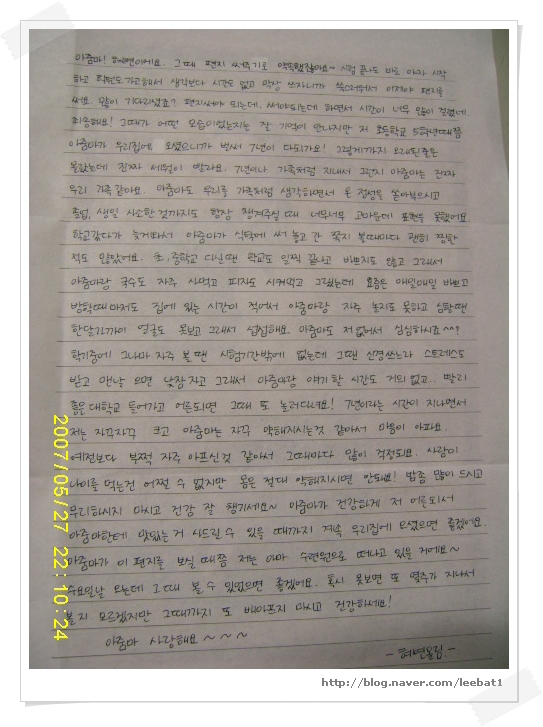 아줌마! 혜연이에요. 그때 편지 써주기로 약속했잖아요~ 시험 끝나도 바로 야자 시작
하고 학원도 가고해서 생각보다 시간도 없고 막상 쓰자니까 쑥스러워서 이제야 편지를
써요. 많이 기다리셨죠? 편지써야 되는데, 써야되는데 하면서 시간이 너무 많이 걸렸네.
죄송해요! 그때가 어떤 모습이었는지는 잘 기억이 안나지만 저 초등학교 5학년때쯤
아줌마가 우리집에 오셨으니까 벌써 7년이 다되가요! 그렇게까지 오래된줄은
몰랐는데 진짜 세월이 빨라요. 7년이나 가족처럼 지내서 그런지 아줌마는 진짜
우리 가족 같아요. 아줌마도 우리를 가족처럼 생각하면서 온 정성을 쏟아부으시고
졸업, 생일 사소한것까지도 항상 챙겨주실 때 너무너무 고마운데 표현을 못했어요
학교갔다가 늦게와서 아줌마가 식탁에 써 놓고 간 쪽지 볼때마다 괜히 찡할
적도 많았어요. 초,중학교 다닐땐 학교도 일찍 끝나고 바쁘지도 않고 그래서
아줌마랑 국수도 자주 사먹고 피자도 시켜먹고 그랬는데 요즘은 매일매일 바쁘고
방학때마저도 집에 있는 시간이 적어서 아줌마랑 자주 놀지도 못하고 심할땐
한달가까이 얼굴도 못보고 그래서 섭섭해요. 아줌마도 저 없어서 심심하시죠^^?
학기중에 그나마 자주 볼 땐 시험기간밖에 없는데 그땐 신경쓰느라 스트레스도
받고 맨날 오면 낮잠자고 그래서 아줌마랑 얘기할 시간도 거의 없고.. 빨리
좋은 대학교 들어가고 어른되면 그때 또 놀러다녀요! 7년이라는 시간이 지나면서
저는 자꾸자꾸 크고 아줌마는 자꾸 약해지시는것 같아서 마음이 아파요.
예전보다 부쩍 자주 아프신것 같아서 그때마다 많이 걱정되요. 사람이
나이를 먹는건 어쩔 수 없지만 몸은 절대 약해지시면 안돼요! 밥좀 많이 드시고
무리하시지 마시고 건강 잘 챙기세요~ 아줌마가 건강하게 저 어른되서
아줌마한테 맛있는거 사드릴 수 있을 때까지 계속 우리집에 오셨으면 좋겠어요.
아줌마가 이 편지를 보실 때쯤 저는 아마 수련원으로 떠나고 있을 거에요~
수요일날 오는데 그때 볼 수 있었으면 좋겠어요. 혹시 못보면 또 몇주가 지나서
볼지 모르겠지만 그때까지 또 배아프지 마시고 건강하세요!
아줌마 사랑해요~~~
-혜연올림.-
2007/05/27 22:10:24
http://blog.naver.com/leebat1